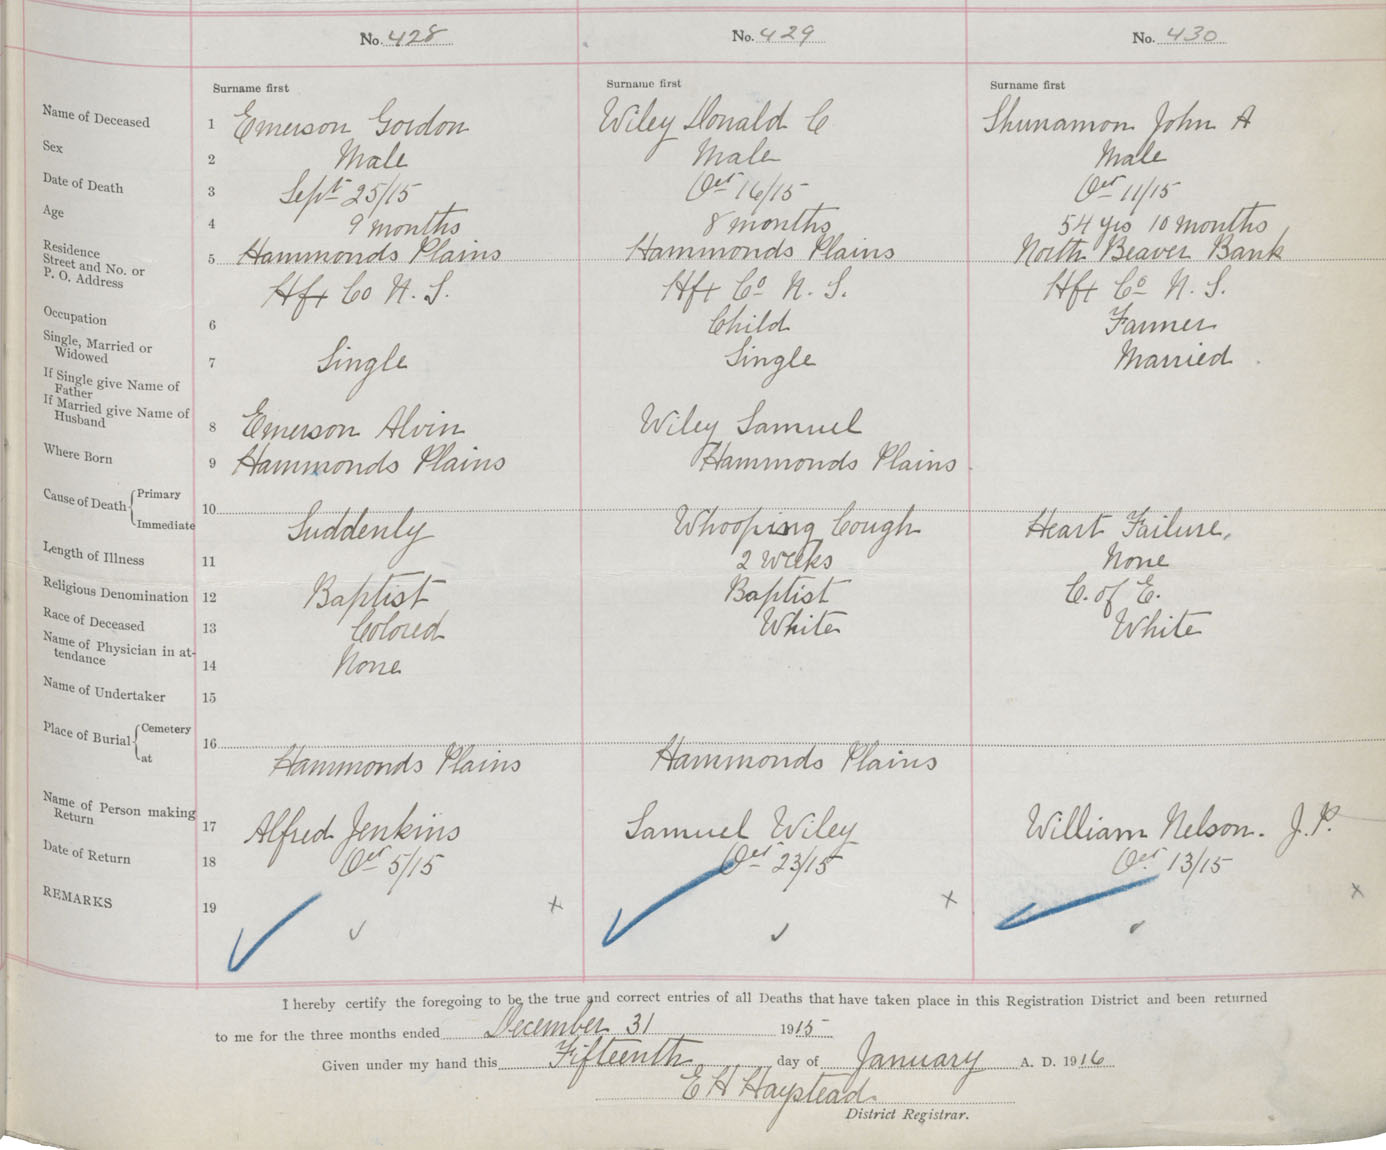 No. 428 No. 429 No. 430
Surname first Surname first Surname first
Name of Deceased 1 Emerson Gordon Wiley Donald C Shunamon John A
Sex 2 Male Male Male
Date of Death 3 Sept 25/15 Oct 16/15 Oct 11/15
Age 4 9 months 8 months 54 yrs 10 months
Residence
Street and No. or 5 Hammonds Plains Hammonds Plains North Beaver Bank
P. O. Address Hfx Co N. S. Hfx Co N. S. Hfx Co N. S.
Occupation 6 Child Farmer
Single, Married or
Widowed 7 Single Single Married
If Single give Name of
Father
If Married give Name of
Husband 8 Emerson Alvin Wiley Samuel
Where Born 9 Hammonds Plains Hammonds Plains
Cause of Death Primary 10
Immediate Suddenly Whooping Cough Heart Failure,
Length of Illness 11 2 weeks None
Religious Denomination 12 Baptist Baptist C. of E.
Race of Deceased 13 Colored White White
Name of Physician in at-
tendance 14 None
Name of Undertaker 15
Place of Burial Cemetery 16
at Hammonds Plains Hammonds Plains
Name of Person making
Return 17 Alfred Jenkins Samuel Wiley William Nelson. J. P.
Date of Return 18 Oct 5/15 Oct 23/15 Oct. 13/15
REMARKS 19 x x x
I hereby certify the foregoing to be the true and correct entries of all Deaths that have taken place in this Registration District and been returned
to me for the three months ended December 31 1915
Given under my hand this Fifteenth day of January A. D. 1916
E H Haystead.
District Registrar.